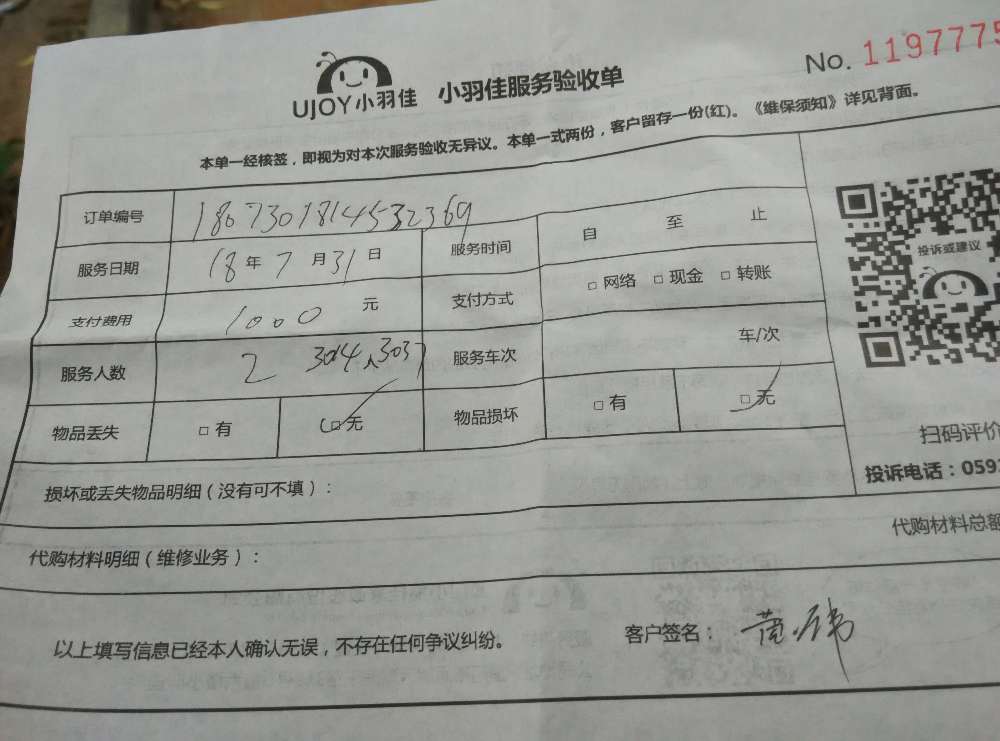 UJOY小羽佳 小羽佳服务验收单 No. 1197775
本单一经核签，即视为对本次服务验收无异议。本单一式两份，客户留存一份(红)。《维保须知》详见背面。
订单编号 180730181453236９
服务日期 18 年 7 月 31 日 服务时间 自 至 止
支付费用 1000 元 支付方式 □ 网络 □ 现金 □ 转账
服务人数 2 3014、3037 服务车次 车/次
物品丢失 □ 有 □ 无 物品损坏 □ 有 □ 无
投诉或建议
扫码评价
投诉电话：059
损坏或丢失物品明细（没有可不填）：
代购材料明细（维修业务）： 代购材料总额
以上填写信息已经本人确认无误，不存在任何争议纠纷。 客户签名：